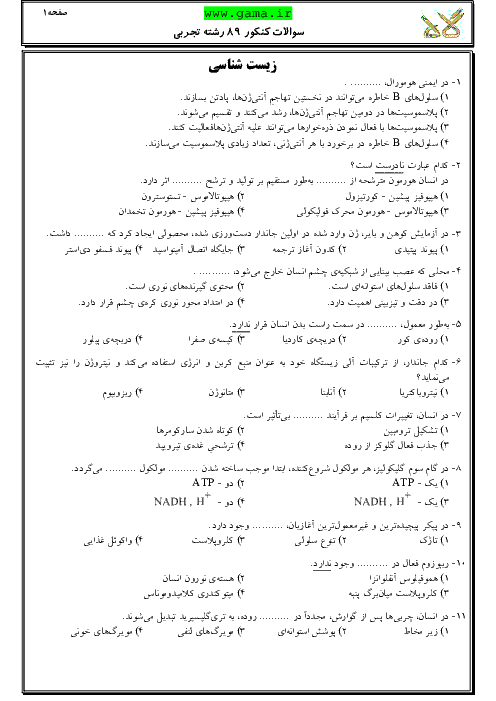 صفحه۱
www.gama.ir
سوالات کنکور ۸۹ رشته تجربی
زیست شناسی
۱- در ایمنی هومورال، .......... .
۱) سلول‌های B خاطره می‌توانند در نخستین تهاجم آنتی‌ژن‌ها، پادتن بسازند.
۲) پلاسموسیت‌ها در دومین تهاجم آنتی‌ژن‌ها، رشد می‌کنند و تقسیم می‌شوند.
۳) پلاسموسیت‌ها با فعال نمودن ذره‌خوارها می‌توانند علیه آنتی‌ژن‌هافعالیت کنند.
۴) سلول‌های B خاطره در برخورد با هر آنتی‌ژنی، تعداد زیادی پلاسموسیت می‌سازند.
۲- کدام عبارت نادرست است؟
در انسان هورمون مترشحه از .......... به‌طور مستقیم بر تولید و ترشح .......... اثر دارد.
۱) هیپوفیز پیشین - کورتیزول ۲) هیپوتالاموس - تستوسترون
۳) هیپوتالاموس - هورمون محرک فولیکولی ۴) هیپوفیز پیشین - هورمون تخمدان
۳- در آزمایش کوهن و بایر، ژن وارد شده در اولین جاندار دست‌ورزی شده، محصولی ایجاد کرد که .......... داشت.
۱) پیوند پپتیدی ۲) کدون آغاز ترجمه ۳) جایگاه اتصال آمینواسید ۴) پیوند فسفو دی‌استر
۴- محلی که عصب بینایی از شبکیه‌ی چشم انسان خارج می‌شود، .......... .
۱) فاقد سلول‌های استوانه‌ای است. ۲) محتوی گیرنده‌های نوری است.
۳) در دقت و تیزبینی اهمیت دارد. ۴) در امتداد محور نوری کره‌ی چشم قرار دارد.
۵- به‌طور معمول، .......... در سمت راست بدن انسان قرار ندارد.
۱) روده‌ی کور ۲) دریچه‌ی کاردیا ۳) کیسه‌ی صفرا ۴) دریچه‌ی پیلور
۶- کدام جاندار، از ترکیبات آلی زیستگاه خود به عنوان منبع کربن و انرژی استفاده می‌کند و نیتروژن را نیز تثبیت
می‌نماید؟
۱) نیتروباکتریا ۲) آنابنا ۳) متانوژن ۴) ریزوبیوم
۷- در انسان، تغییرات کلسیم بر فرآیند .......... بی‌تأثیر است.
۱) تشکیل ترومبین ۲) کوتاه شدن سارکومرها
۳) جذب فعال گلوکز از روده ۴) ترشحی غده‌ی تیروئید
۸- در گام سوم گلیکولیز، هر مولکول شروع‌کننده، ابتدا موجب ساخته شدن .......... مولکول .......... می‌گردد.
۱) یک - ATP ۲) دو - ATP
۳) یک - NADH , H+ ۴) دو - NADH , H+
۹- در پیکر پیچیده‌ترین و غیرمعمول‌ترین آغازیان، .......... وجود دارد.
۱) تاژک ۲) تنوع سلولی ۳) کلروپلاست ۴) واکوئل غذایی
۱۰- ریبوزوم فعال در .......... وجود ندارد.
۱) هموفیلوس آنفلوانزا ۲) هسته‌ی نورون انسان
۳) کلروپلاست میان‌برگ پنبه ۴) میتوکندری کلامیدوموناس
۱۱- در انسان، چربی‌ها پس از گوارش، مجدداً در .......... روده، به تری‌گلیسیرید تبدیل می‌شوند.
۱) زیر مخاط ۲) پوشش استوانه‌ای ۳) مویرگ‌های لنفی ۴) مویرگ‌های خونی